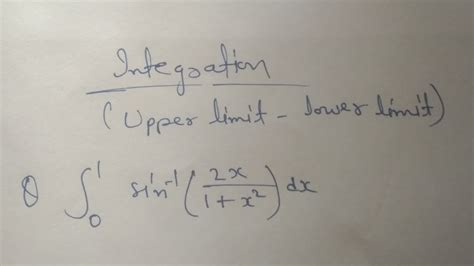 Integration
(Upper limit - lower limit)
Q ∫₀¹ sin⁻¹(2x/(1+x²)) dx